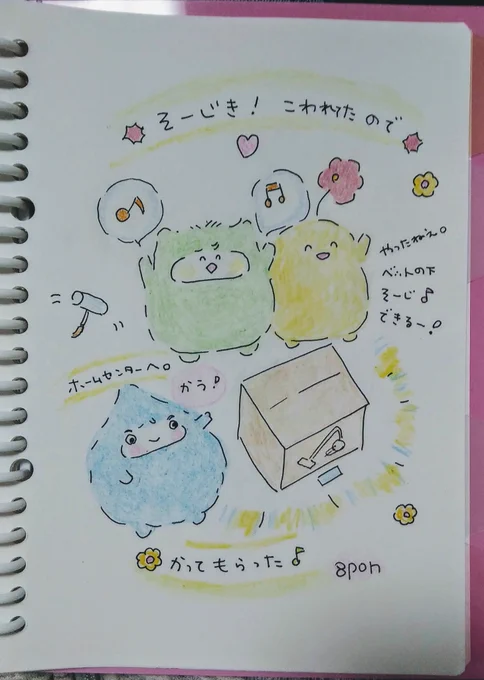 そーじき！ こわれてたので
やったねえ。
ベットの下
そーじ♪
できるー！
ホームセンターへ。
かう！
かってもらった♪
8pon